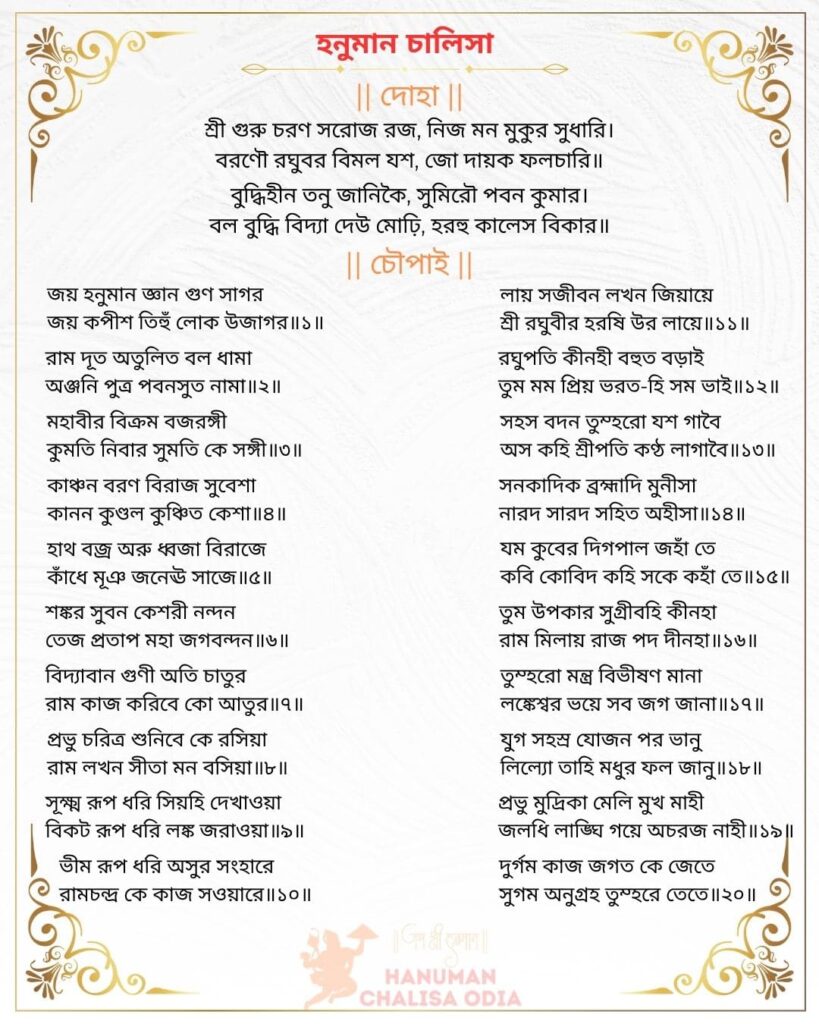 হনুমান চালিসা
|| দোহা ||
শ্রী গুরু চরণ সরোজ রজ, নিজ মন মুকুর সুধারি।
বরণৌ রঘুবর বিমল যশ, জো দায়ক ফলচারি॥
বুদ্ধিহীন তনু জানিকৈ, সুমিরৌ পবন কুমার।
বল বুদ্ধি বিদ্যা দেউ মোঢ়ি, হরহু কালেস বিকার॥
|| চৌপাই ||
জয় হনুমান জ্ঞান গুণ সাগর
জয় কপীশ তিহুঁ লোক উজাগর॥১॥
রাম দূত অতুলিত বল ধামা
অঞ্জনি পুত্র পবনসুত নামা॥২॥
মহাবীর বিক্রম বজরঙ্গী
কুমতি নিবার সুমতি কে সঙ্গী॥৩॥
কাঞ্চন বরণ বিরাজ সুবেশা
কানন কুণ্ডল কুঞ্চিত কেশা॥৪॥
হাথ বজ্র অরু ধ্বজা বিরাজে
কাঁধে মূঞ জনেঊ সাজে॥৫॥
শঙ্কর সুবন কেশরী নন্দন
তেজ প্রতাপ মহা জগবন্দন॥৬॥
বিদ্যাবান গুণী অতি চাতুর
রাম কাজ করিবে কো আতুর॥৭॥
প্রভু চরিত্র শুনিবে কে রসিয়া
রাম লখন সীতা মন বসিয়া॥৮॥
সূক্ষ্ম রূপ ধরি সিয়হি দেখাওয়া
বিকট রূপ ধরি লঙ্ক জরাওয়া॥৯॥
ভীম রূপ ধরি অসুর সংহারে
রামচন্দ্র কে কাজ সওয়ারে॥১০॥
লায় সজীবন লখন জিয়ায়ে
শ্রী রঘুবীর হরষি উর লায়ে॥১১॥
রঘুপতি কীনহী বহুত বড়াই
তুম মম প্রিয় ভরত-হি সম ভাই॥১২॥
সহস বদন তুম্হরো যশ গাবৈ
অস কহি শ্রীপতি কণ্ঠ লাগাবৈ॥১৩॥
সনকাদিক ব্রহ্মাদি মুনীসা
নারদ সারদ সহিত অহীসা॥১৪॥
যম কুবের দিগপাল জহাঁ তে
কবি কোবিদ কহি সকে কহাঁ তে॥১৫॥
তুম উপকার সুগ্রীবহি কীনহা
রাম মিলায় রাজ পদ দীনহা॥১৬॥
তুম্হরো মন্ত্র বিভীষণ মানা
লঙ্কেশ্বর ভয়ে সব জগ জানা॥১৭॥
যুগ সহস্র যোজন পর ভানু
লিল্যো তাহি মধুর ফল জানু॥১৮॥
প্রভু মুদ্রিকা মেলি মুখ মাহী
জলধি লাঙ্ঘি গয়ে অচরজ নাহী॥১৯॥
দুর্গম কাজ জগত কে জেতে
সুগম অনুগ্রহ তুম্হরে তেতে॥২০॥
HANUMAN
CHALISA ODIA